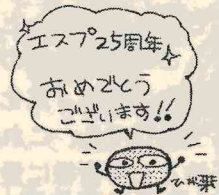 エスプ25周年
おめでとう
ございます!!